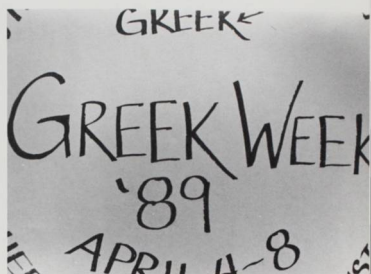 GREEK
GREEK WEEK
'89
APRIL 4-8